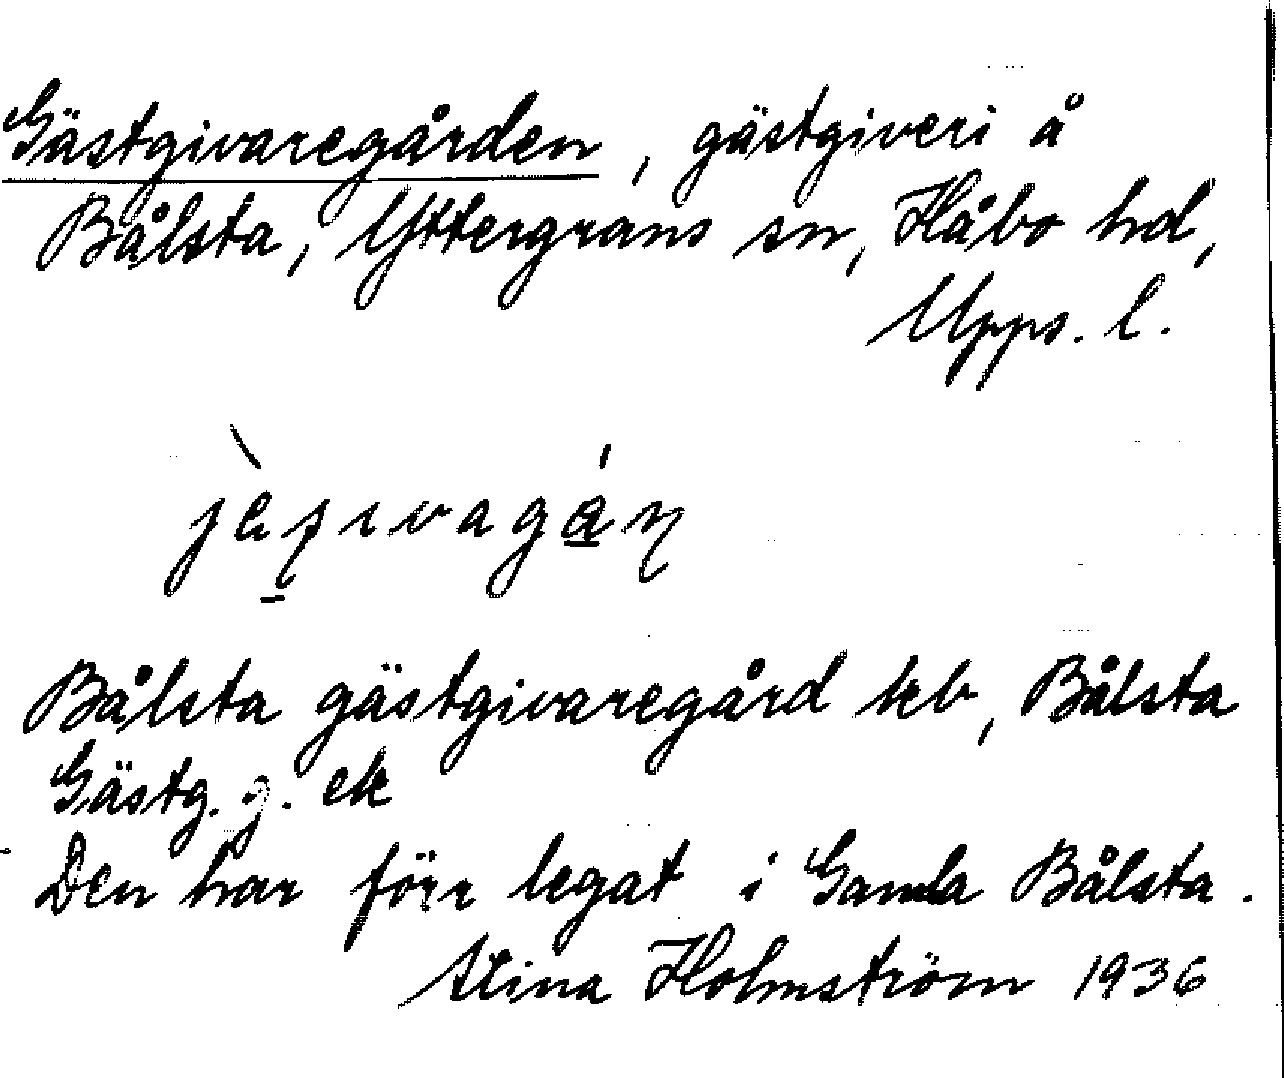 Gästgivaregården, gästgiveri å
Bålsta, Yttergrans sn, Håbo hd,
Upps. l.
Bålsta gästgivaregård kb, Bålsta
Gästg. g. ek
Den har förr legat i Gamla Bålsta.
Stina Holmström 1936